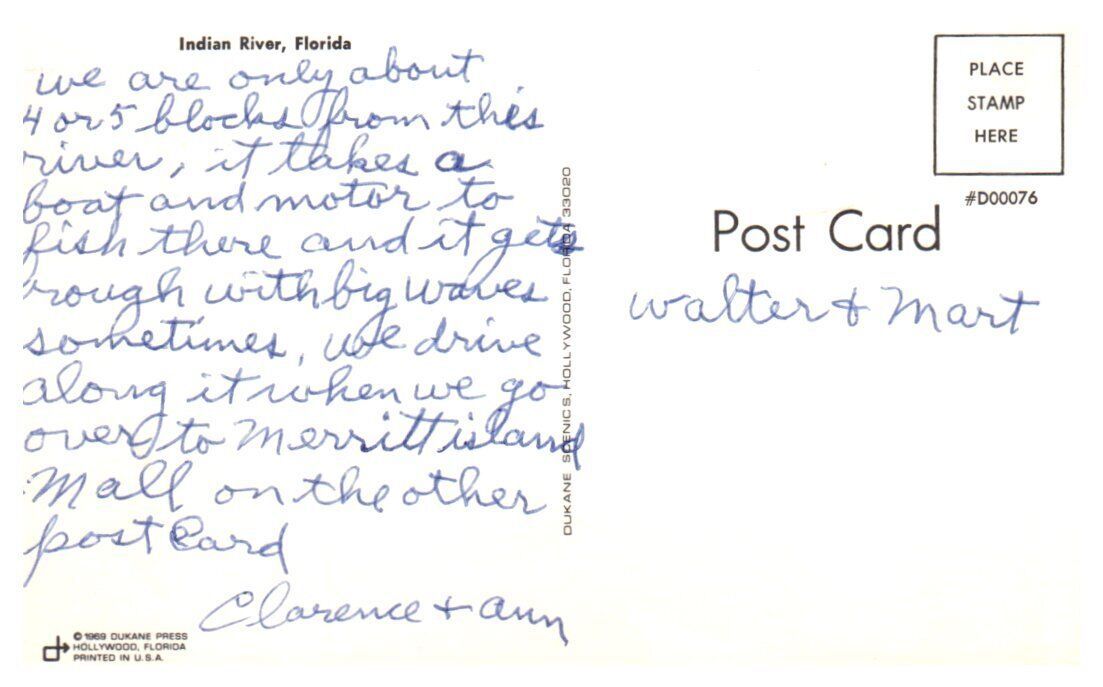 Indian River, Florida
we are only about
4 or 5 blocks from this
river, it takes a
boat and motor to
fish there and it gets
rough with big waves
sometimes, we drive
along it when we go
over to Merritt island
Mall on the other
post Card
Clarence + ann
© 1969 DUKANE PRESS
HOLLYWOOD, FLORIDA
PRINTED IN U.S.A.
DUKANE SCENICS, HOLLYWOOD, FLORIDA 33020
PLACE
STAMP
HERE
#D00076
Post Card
Walter & Mart